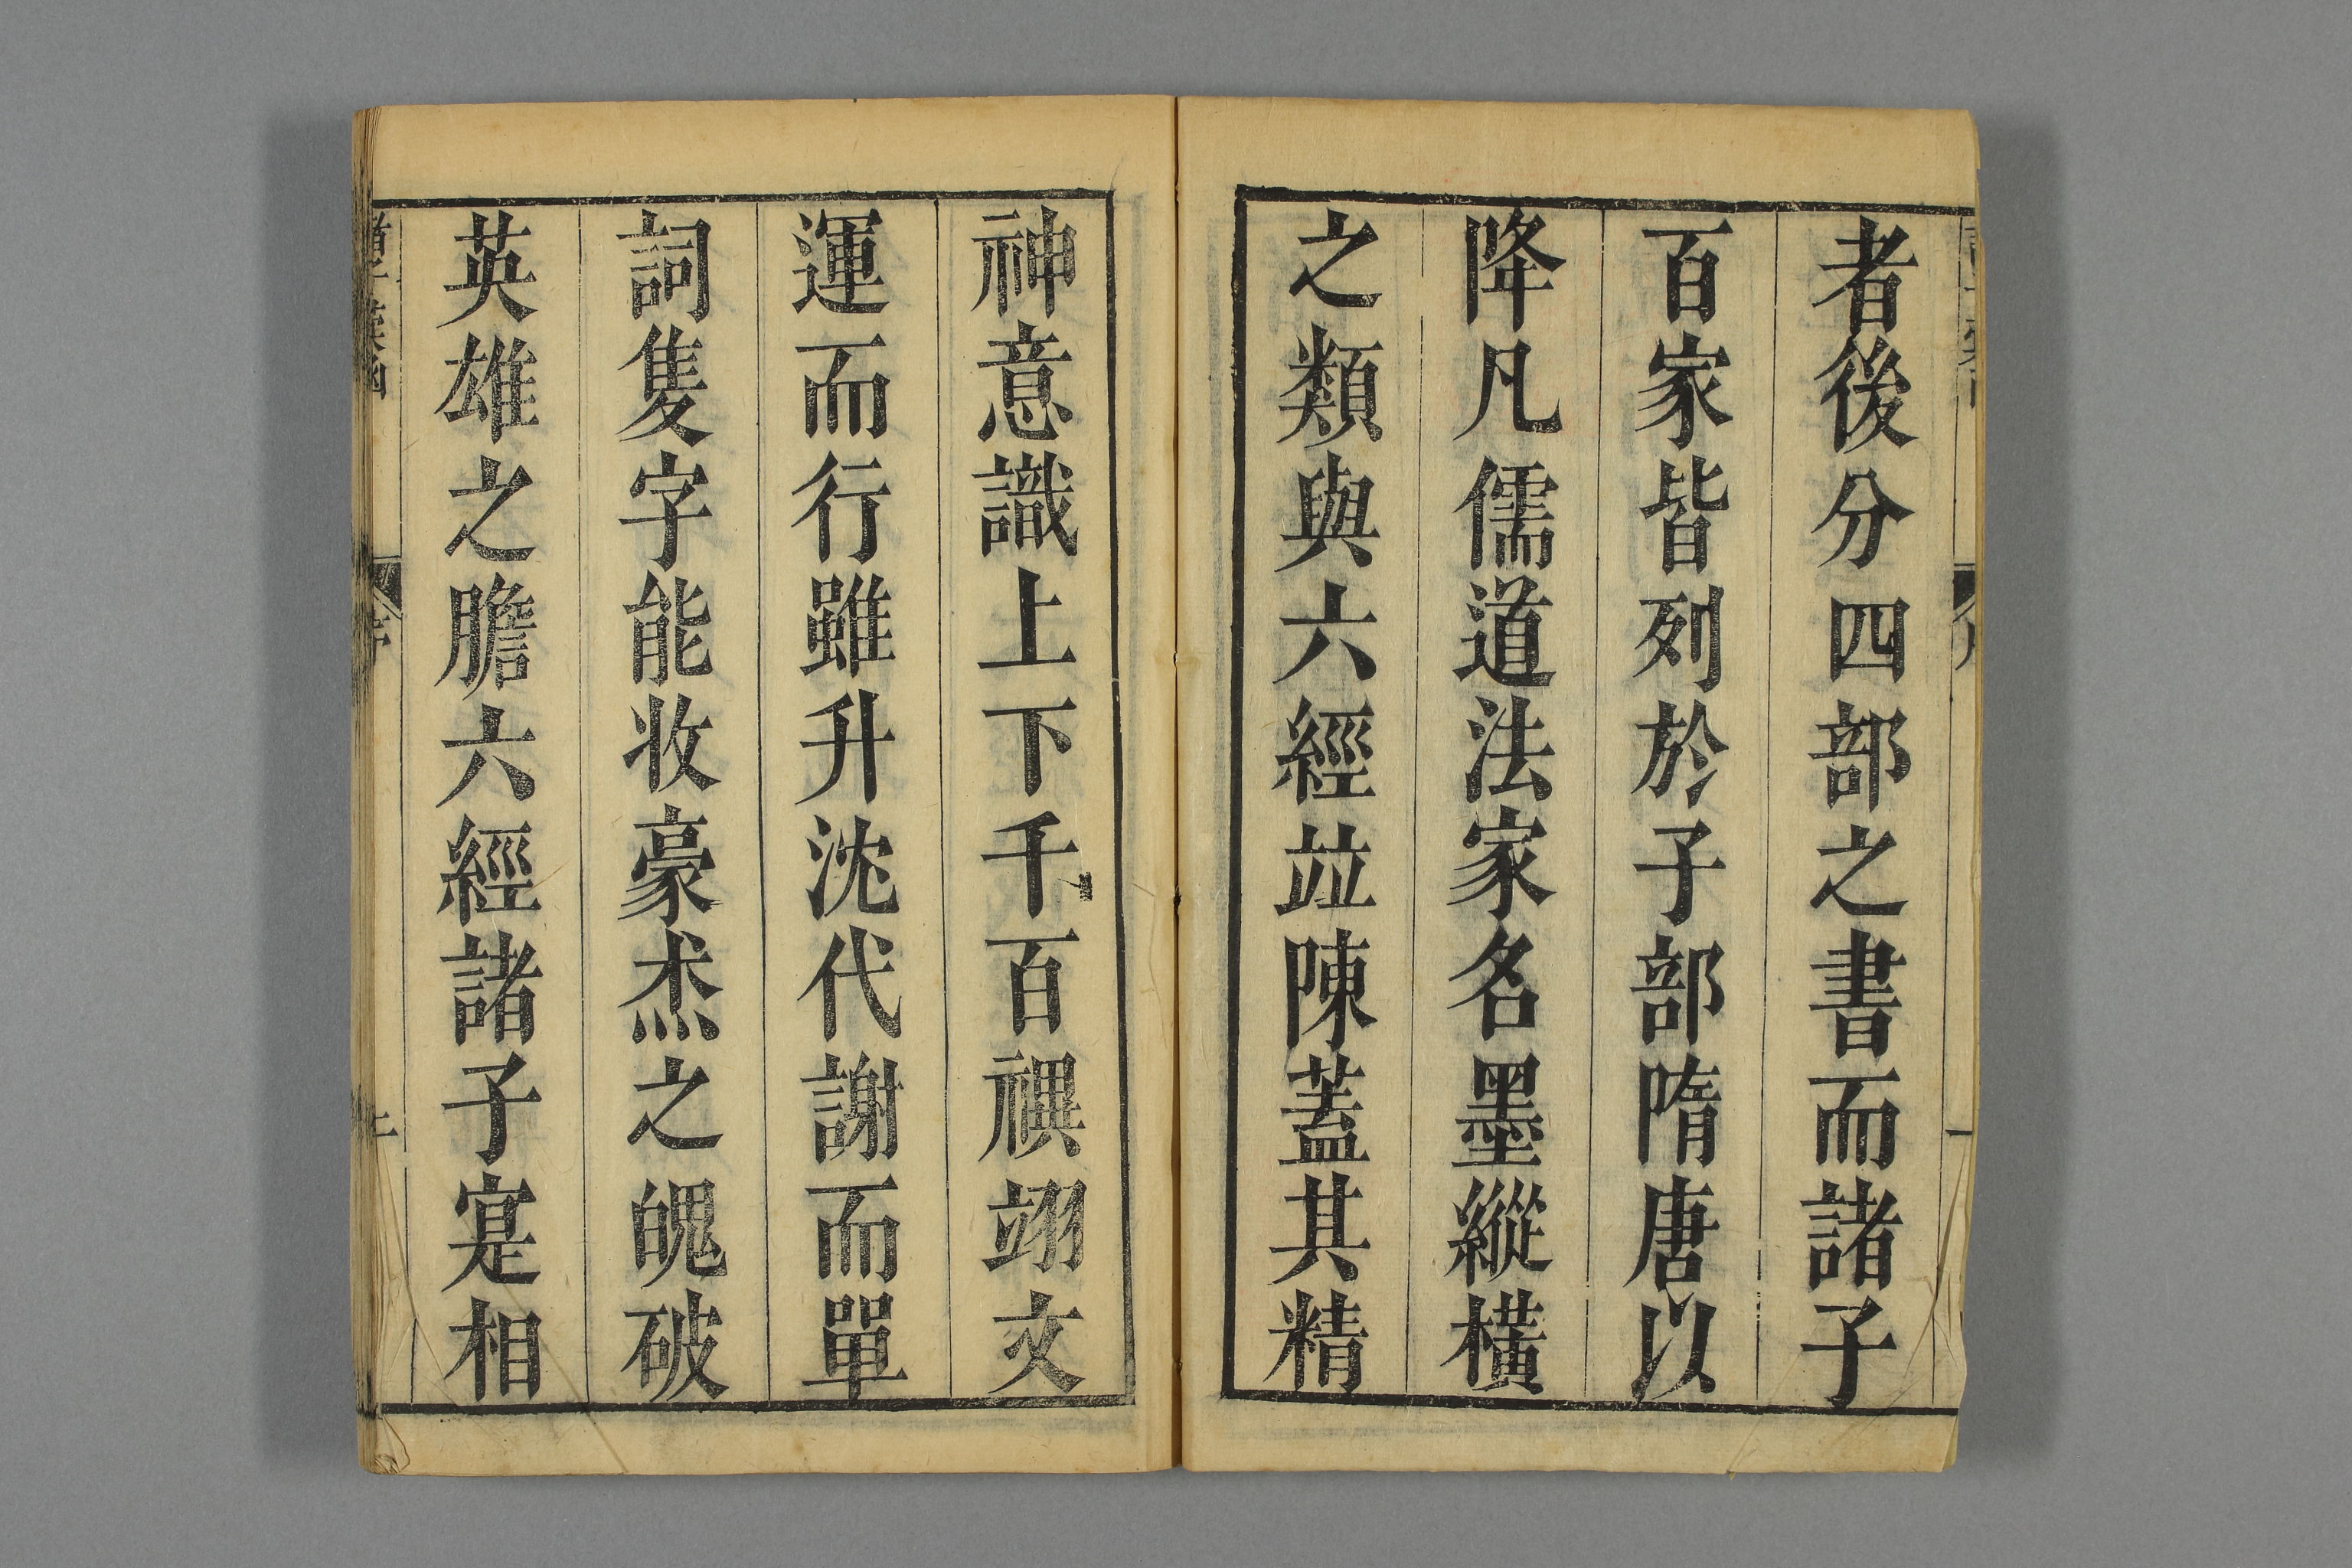 者後分四部之書而諸子
百家皆列於子部隋唐以
降凡儒道法家名墨縱橫
之類與六經竝陳蓋其精
神意識上下千百禩翊文
運而行雖升沈代謝而單
詞隻字能收豪杰之魄破
英雄之膽六經諸子寔相